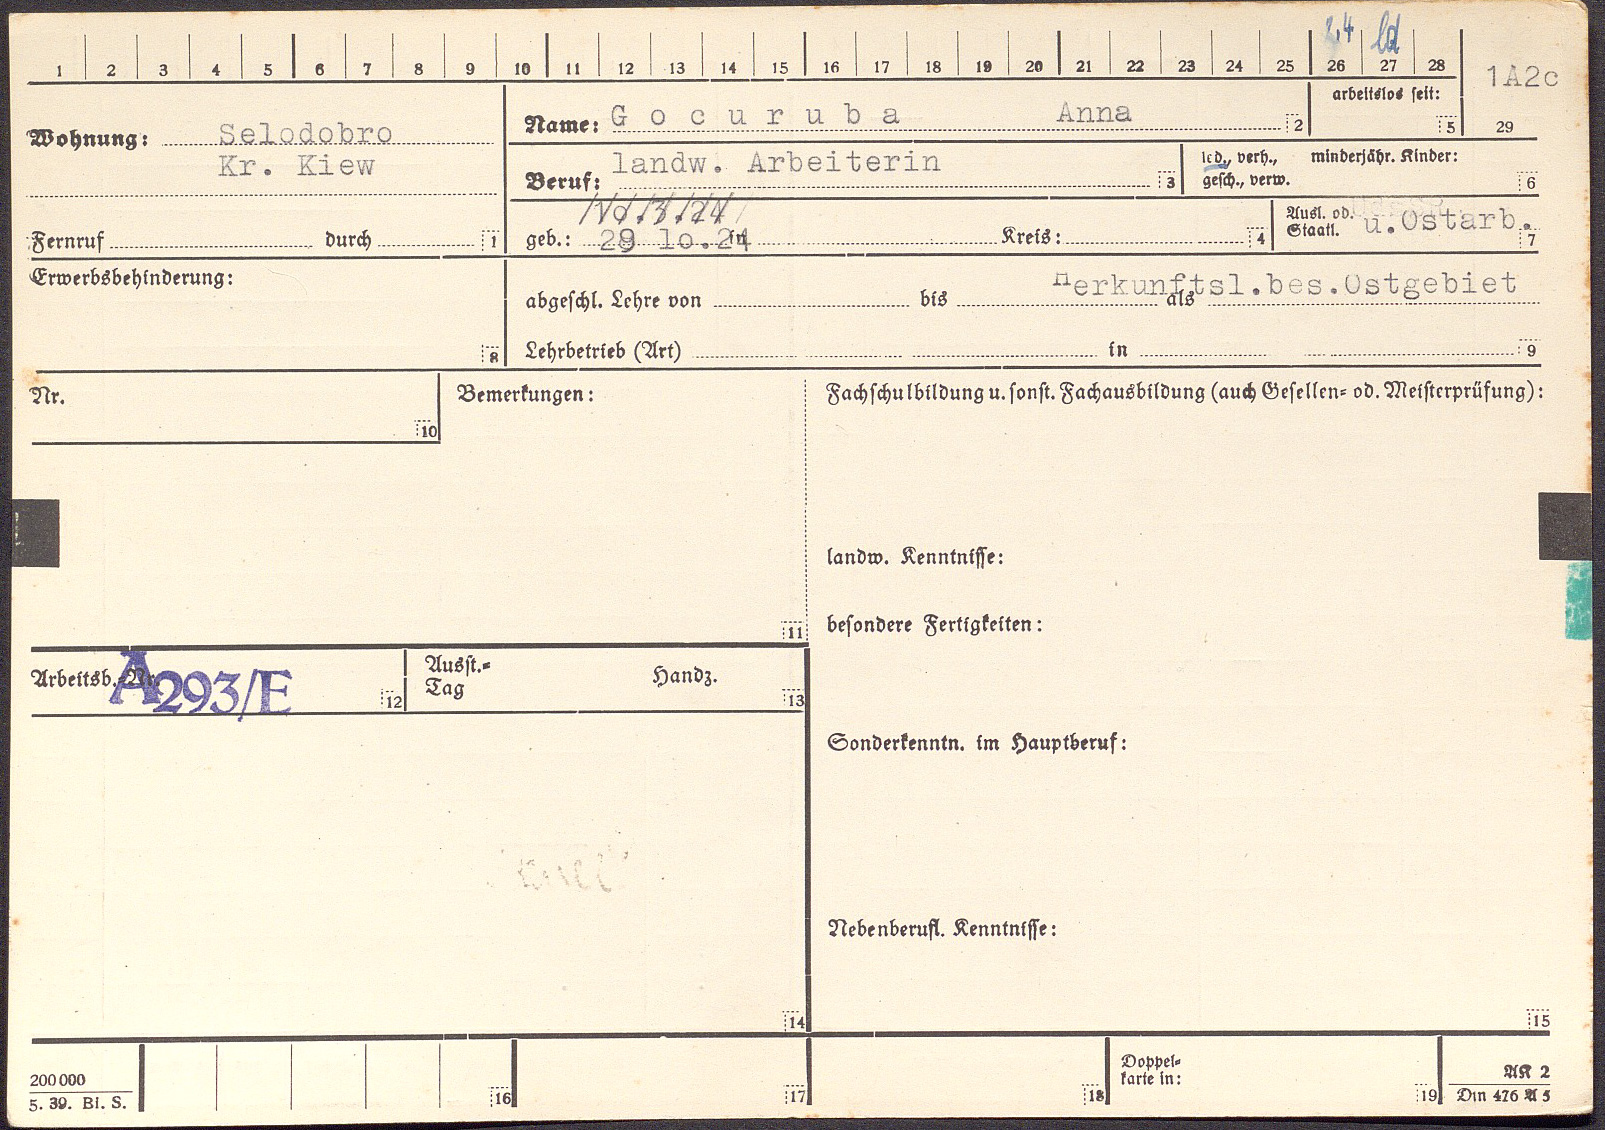 2,4 ld
1 2 3 4 5 6 7 8 9 10 11 12 13 14 15 16 17 18 19 20 21 22 23 24 25 26 27 28
1A2c
arbeitslos seit:
5 29
Wohnung: Selodobro
Kr. Kiew
Name: Gocuruba Anna 2
Beruf: landw. Arbeiterin 3
led., verh., minderjähr. Kinder:
gesch., verw. 6
Fernruf durch 1
geb.: 29 10.24 in Kreis: 4
Ausl. od. Staatl. u.Ostarb. 7
Erwerbsbehinderung:
8
Herkunftsl.bes.Ostgebiet
abgeschl. Lehre von bis als
Lehrbetrieb (Art) in 9
Nr.
10
Bemerkungen:
11
Fachschulbildung u. sonst. Fachausbildung (auch Gesellen- od. Meisterprüfung):
landw. Kenntnisse:
besondere Fertigkeiten:
Arbeitsb.-Nr. A293/E 12
Ausst.-
Tag Handz. 13
Sonderkenntn. im Hauptberuf:
Nebenberufl. Kenntnisse:
14 15
200 000
5. 39. Bl. S.
16 17 18
Doppel-
karte in: 19
AK 2
Din 476 A 5